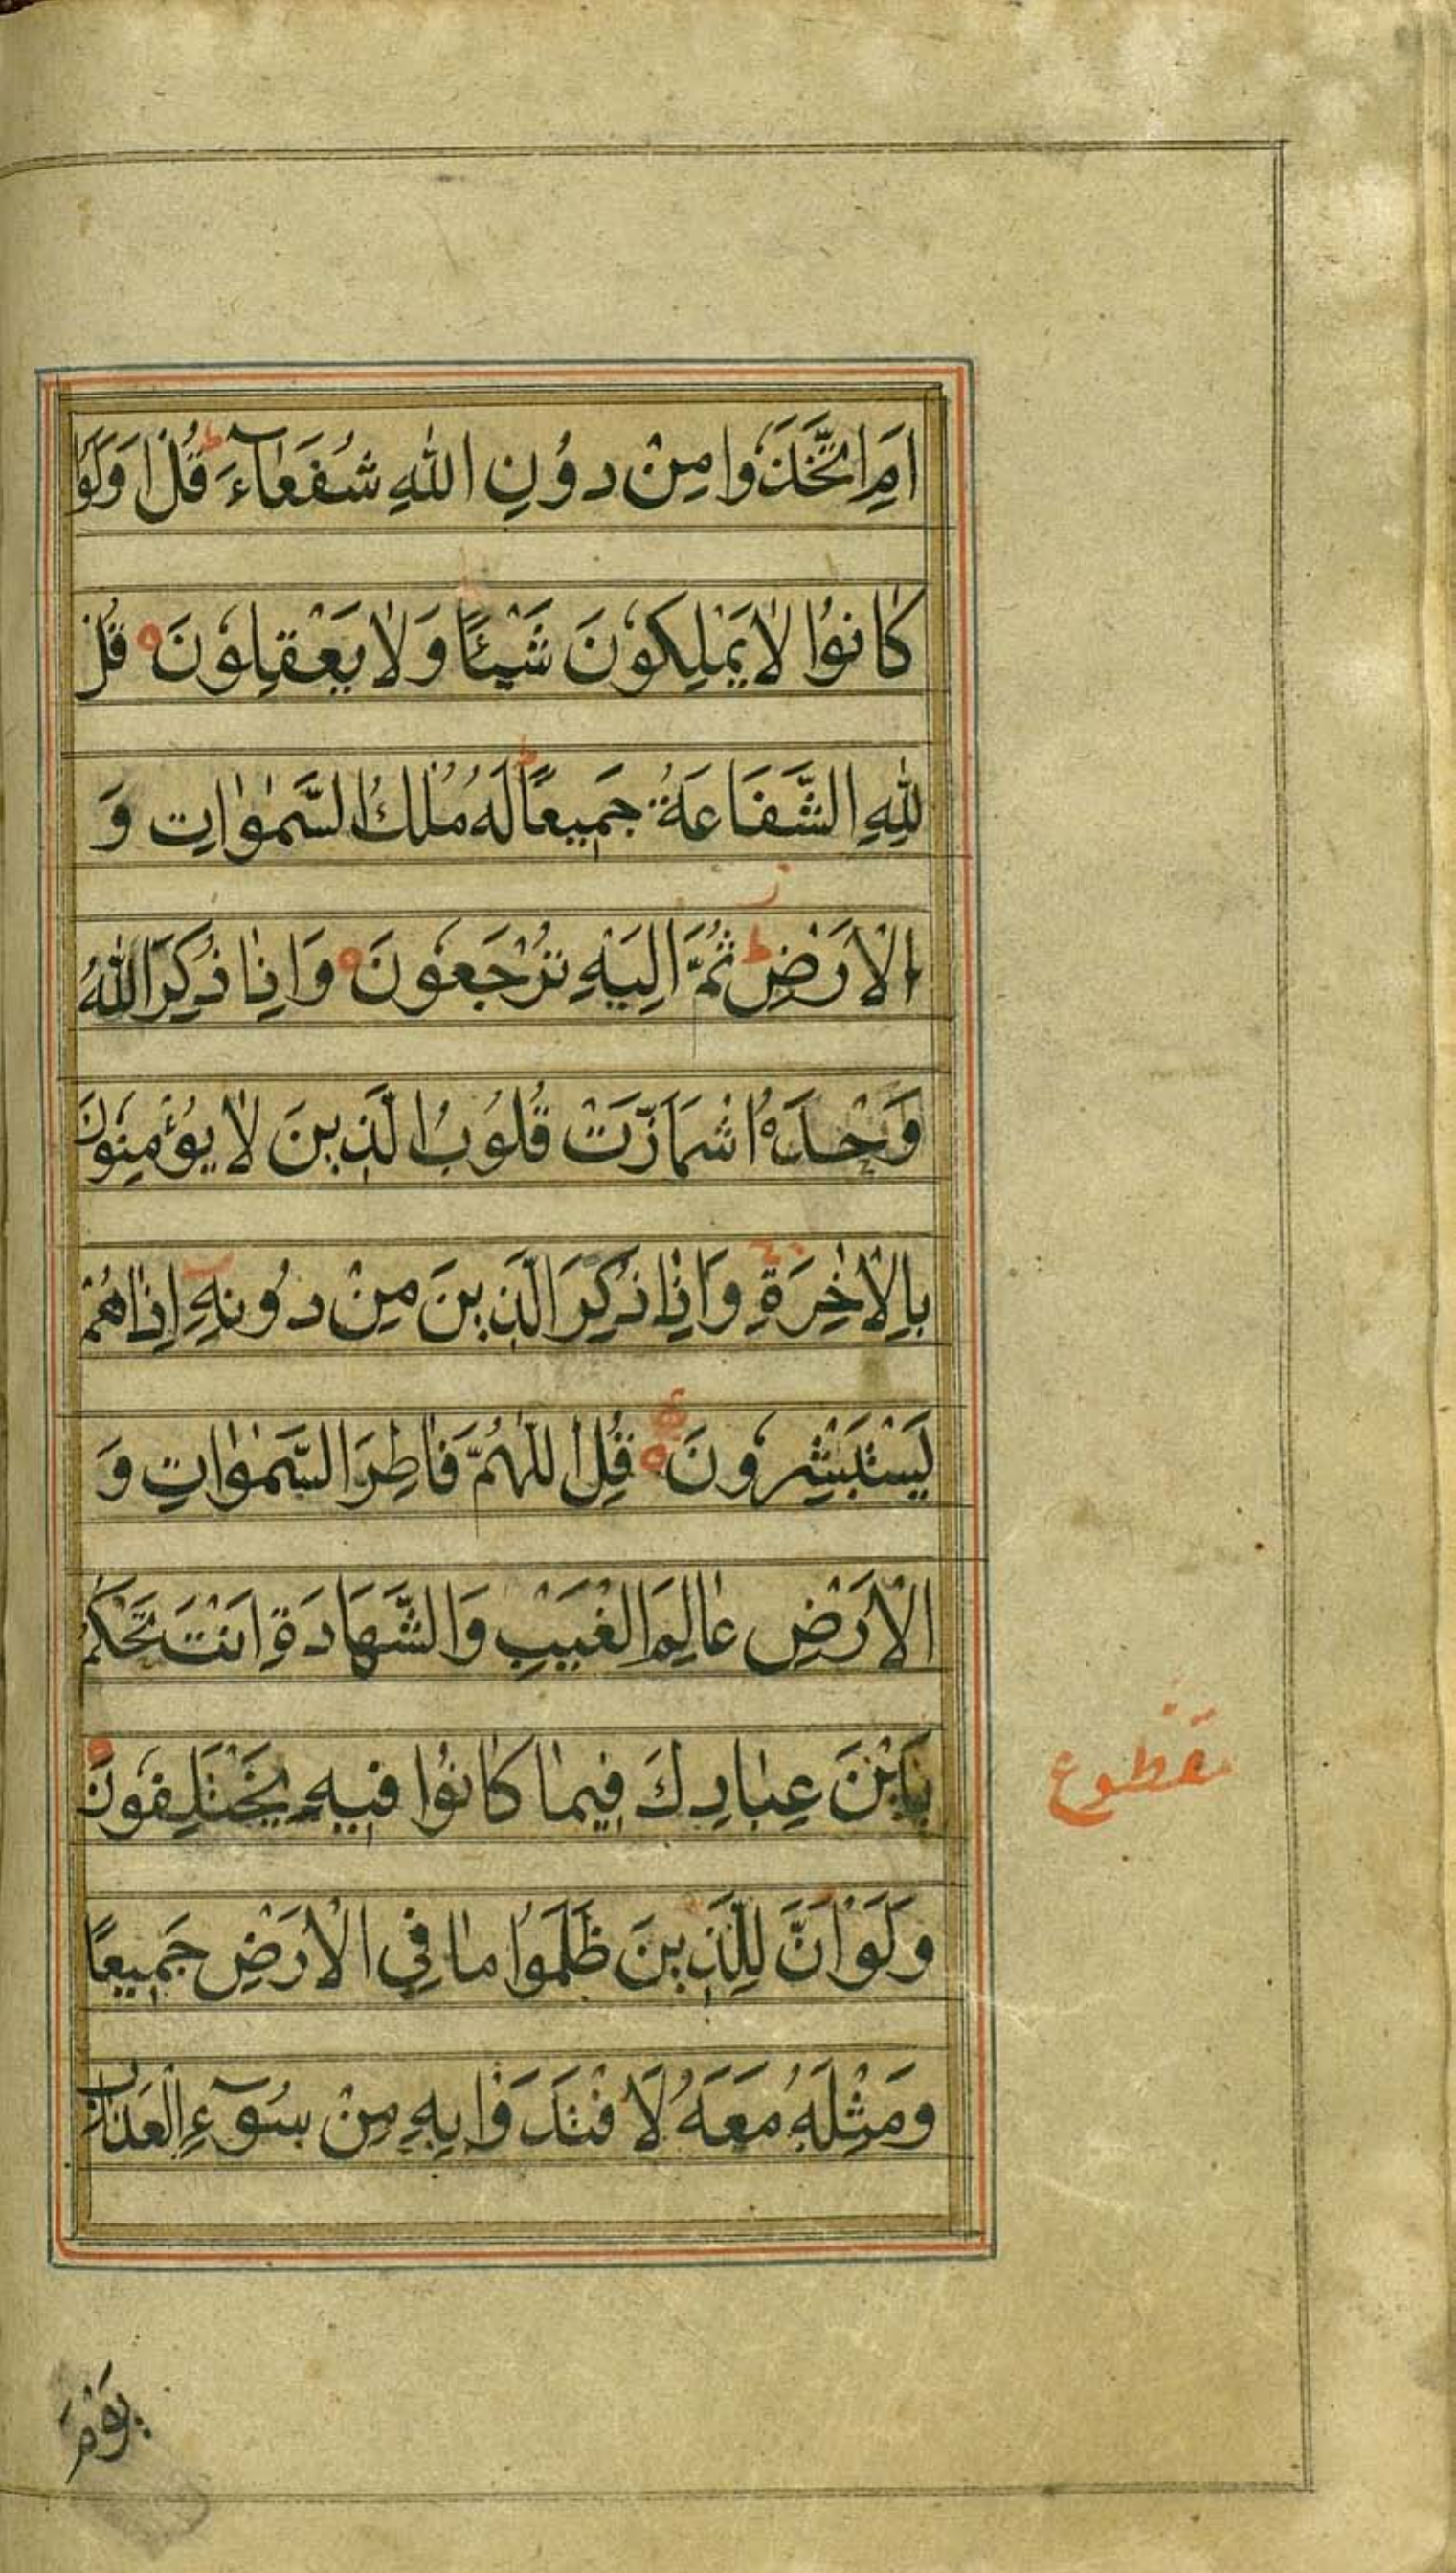 اَمِ اتَّخَذُوا مِنْ دُونِ اللّٰهِ شُفَعٰاۤءَ ط قُلْ اَوَلَوْ
كٰانُوا لٰا يَمْلِكُونَ شَيْئًا وَلٰا يَعْقِلُونَ ه قُلْ
لِلّٰهِ الشَّفَاعَةُ جَمِيعًا ط لَهُ مُلْكُ السَّمٰوٰاتِ وَ
الْاَرْضِ ط ثُمَّ اِلَيْهِ تُرْجَعُونَ ه وَاِذٰا ذُكِرَ اللّٰهُ
وَحْدَهُ اشْمَاَزَّتْ قُلُوبُ الَّذِينَ لٰا يُؤْمِنُونَ
بِالْاٰخِرَةِ وَاِذٰا ذُكِرَ الَّذِينَ مِنْ دُونِهِ اِذٰا هُمْ
يَسْتَبْشِرُونَ ه قُلِ اللّٰهُمَّ فَاطِرَ السَّمٰوٰاتِ وَ
الْاَرْضِ عٰالِمَ الْغَيْبِ وَالشَّهَادَةِ اَنْتَ تَحْكُمُ
بَيْنَ عِبٰادِكَ فِيمٰا كٰانُوا فِيهِ يَخْتَلِفُونَ ه
مقطوع
وَلَوْ اَنَّ لِلَّذِينَ ظَلَمُوا مٰا فِي الْاَرْضِ جَمِيعًا
وَمِثْلَهُ مَعَهُ لَافْتَدَوْا بِهِ مِنْ سُوۤءِ الْعَذٰابِ
يَوْمَ